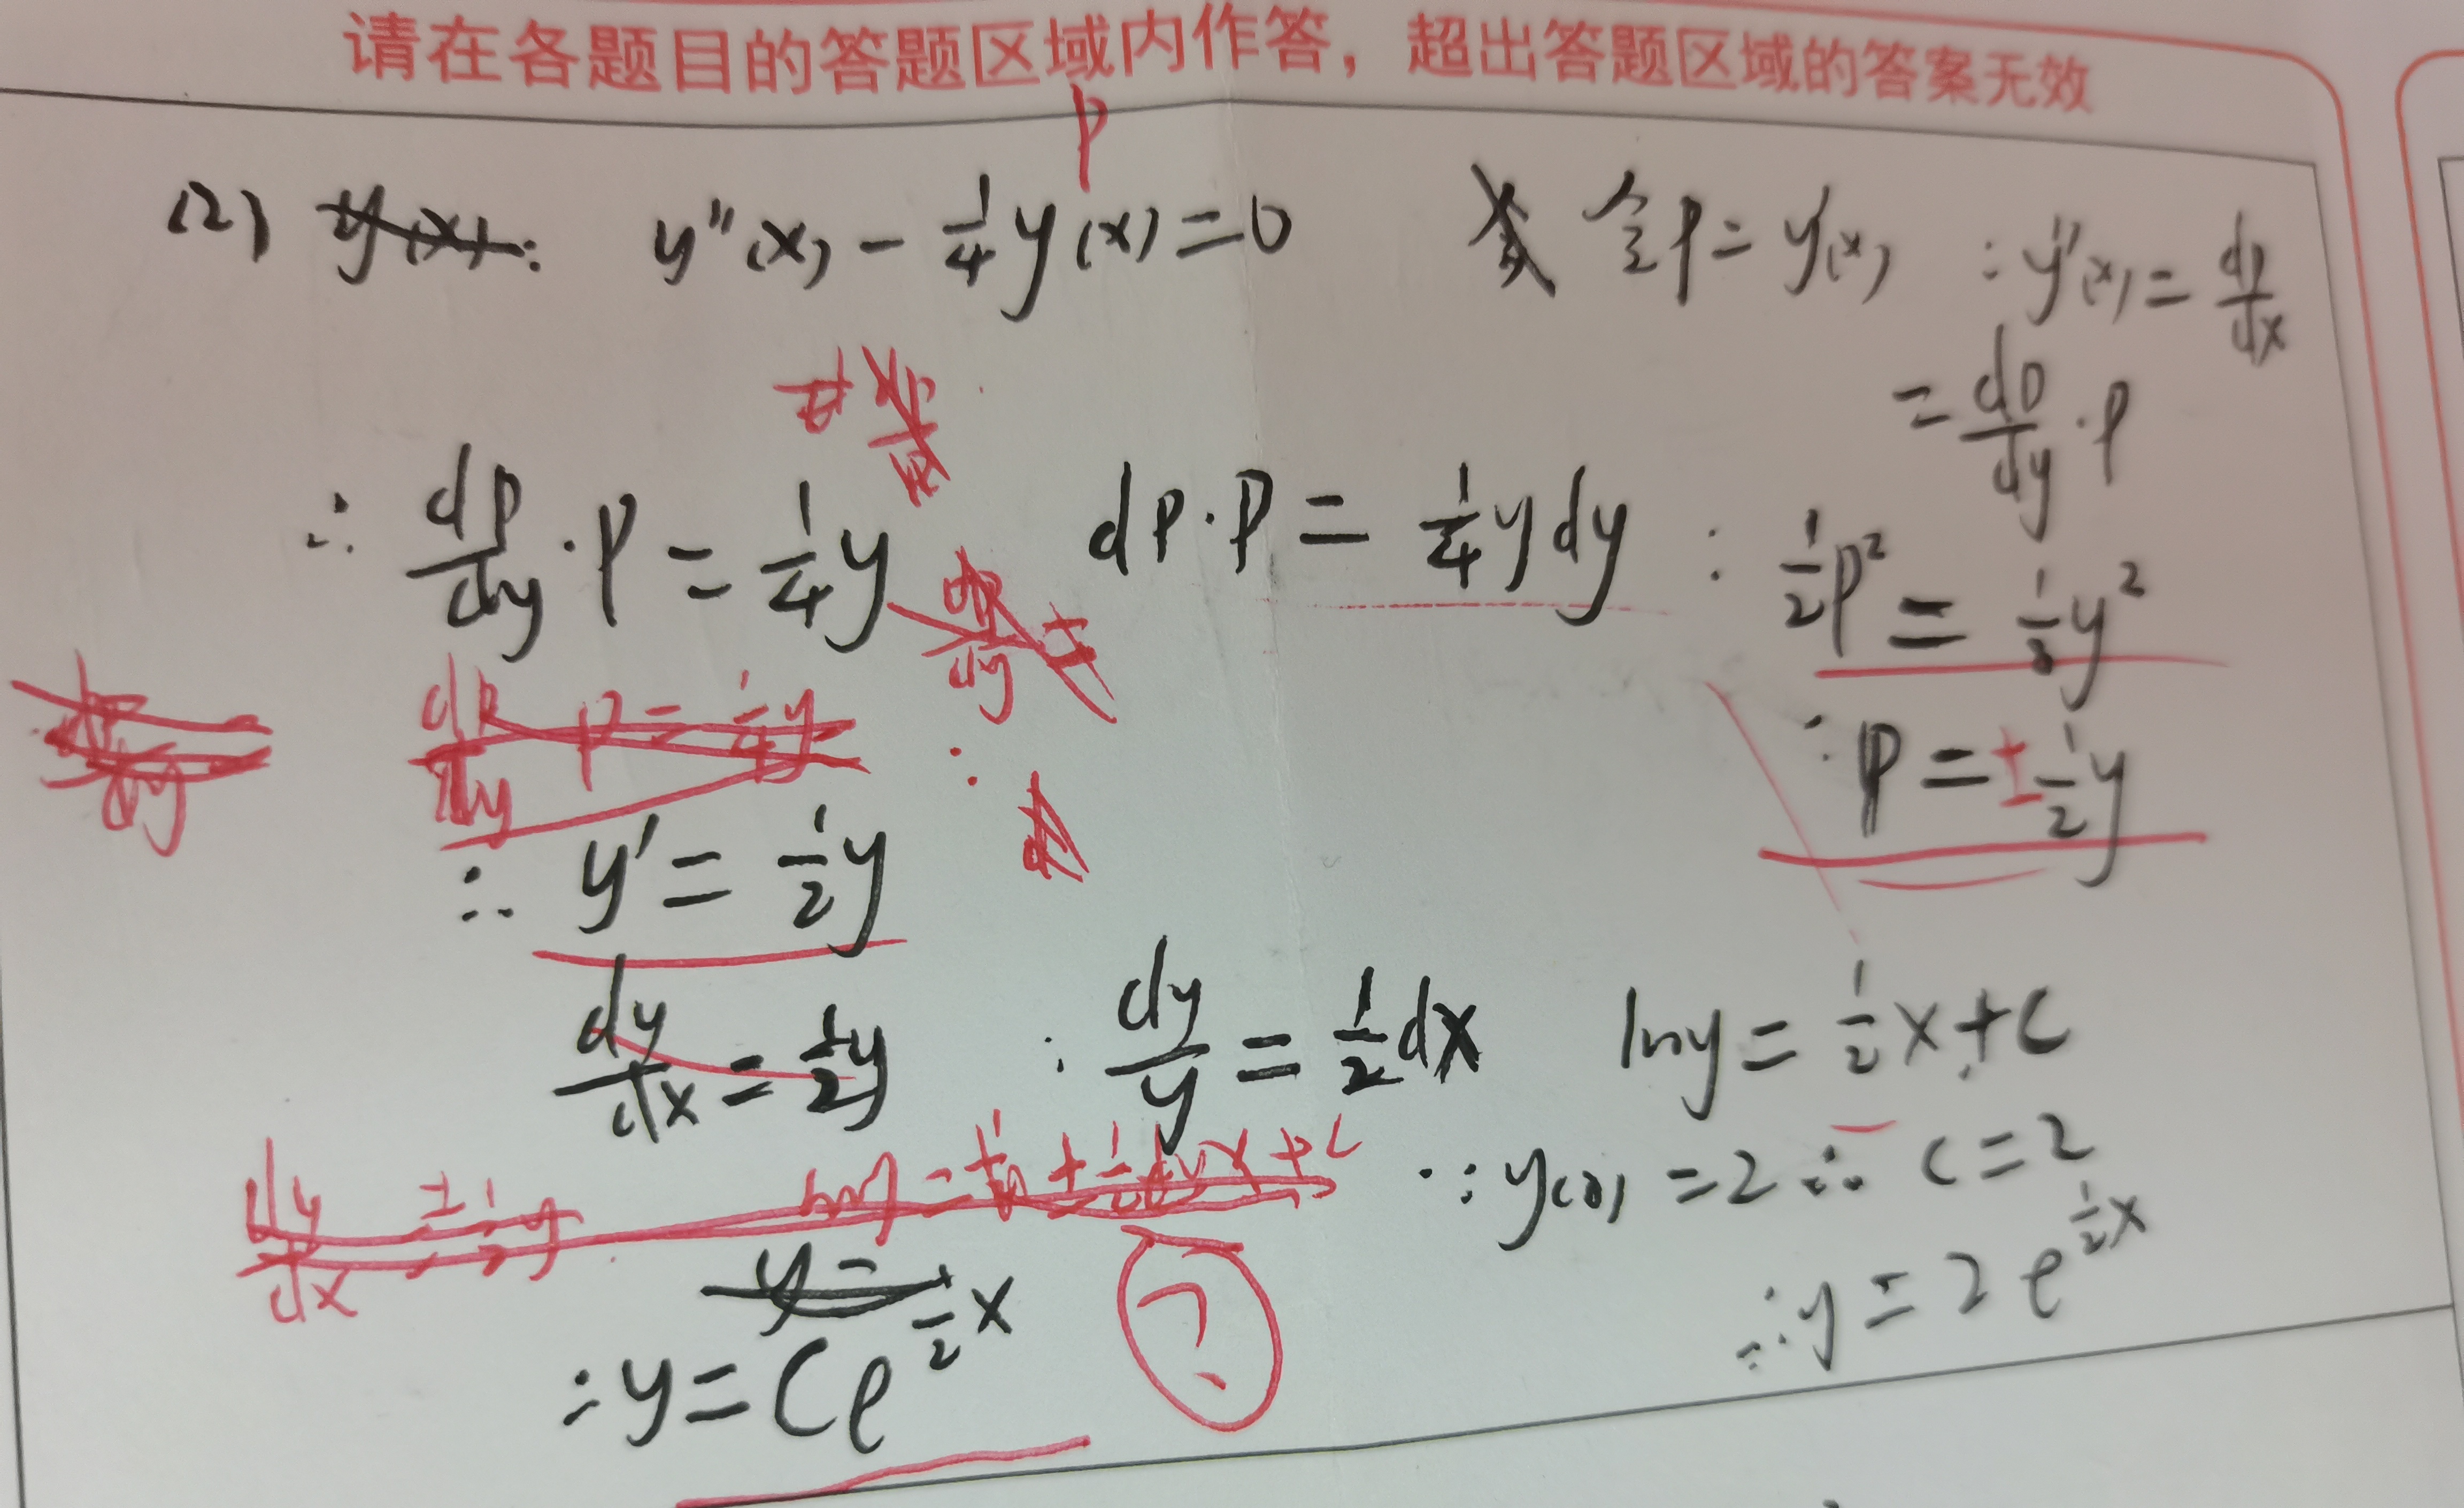 请在各题目的答题区域内作答，超出答题区域的答案无效
P
(2) y(x): y''(x) - 1/4 y(x) = 0 令P = y'(x) ∴ y''(x) = dp/dx
= dp/dy · P
∴ dp/dy · P = 1/4 y dP·P = 1/4 y dy ∴ 1/2 P² = 1/8 y²
dp/dy
dp/dy P = 1/4 y ∴ P = ± 1/2 y
∴ y' = 1/2 y
dy/dx = 1/2 y ∴ dy/y = 1/2 dx lny = 1/2 x + C
dy/dx = ± 1/2 y
∵ y(0) = 2 ∴ C = 2
y =
∴ y = C e^{1/2 x} ? ∴ y = 2 e^{1/2 x}